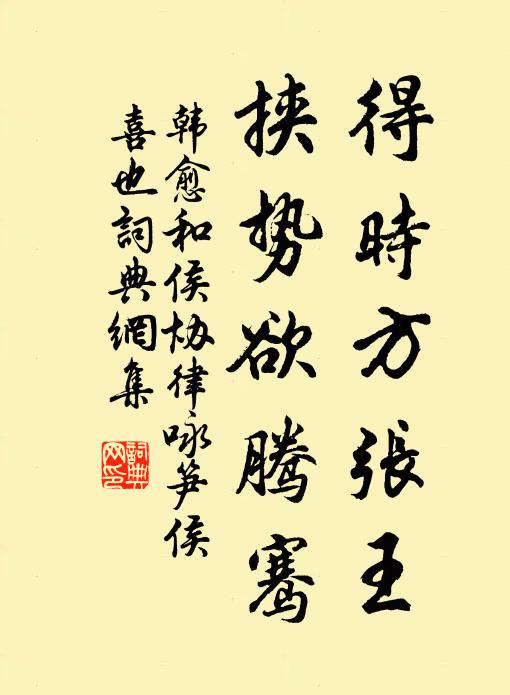 得時方張王
挟势欲腾骞
韩愈和侯协律咏笋侯
喜也詞典網集
詞典网印